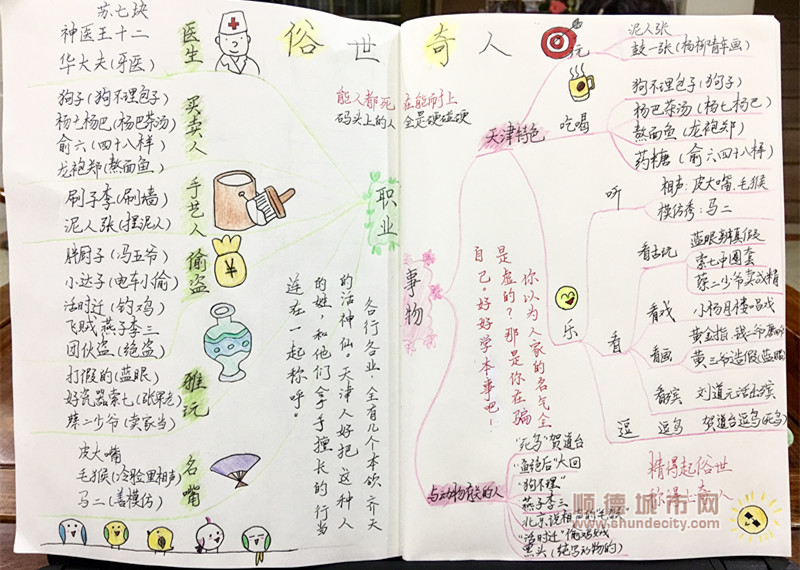 俗世奇人
苏七块
神医王十二
华大夫(牙医)
医生
狗子(狗不理包子)
杨七杨巴(杨巴茶汤)
俞六(四十八样)
龙袍郑(熬面鱼)
买卖人
刷子李(刷墙)
泥人张(捏泥人)
手艺人
胖厨子(冯五爷)
小达子(电车小偷)
活时迁(钓鸡)
飞贼燕子李三
团伙盗(绝盗)
偷盗
打假的(蓝眼)
好瓷器索七(张果老)
蔡二少爷(卖家当)
雅玩
皮大嘴
毛猴(冷脸里相声)
马二(善模仿)
名嘴
职业
能人都死在能耐上
码头上的人全是硬碰硬
各行各业,全有几个本领齐天
的活神仙。天津人好把这种人
的姓,和他们拿手擅长的行当
连在一起称呼。
事物
天津特色
玩
泥人张
鼓一张(杨柳青年画)
吃喝
狗不理包子(狗子)
杨巴茶汤(杨七杨巴)
熬面鱼(龙袍郑)
药糖(俞六四十八样)
乐
听
相声:皮大嘴、毛猴
模仿秀:马二
看
看古玩
蓝眼辨真假
索七中圈套
蔡二少爷卖
看戏
小杨月楼唱戏
看画
黄金指、钱二爷
黄三爷造假(蓝眼)
看殡
刘道元活出殡
逗
逗鸟
贺道台逗鸟(死鸟)
你以为人家的名气全
是虚的?那是你在骗
自己。好好学本事吧!
与动物有关的人
“死鸟”贺道台
“血绝后”大回
“狗不理”
燕子李三
北京说相声的
“活时迁”偷鸡
黑头(绝写动物的)
精得起俗世
顺德城市网
www.shundecity.com